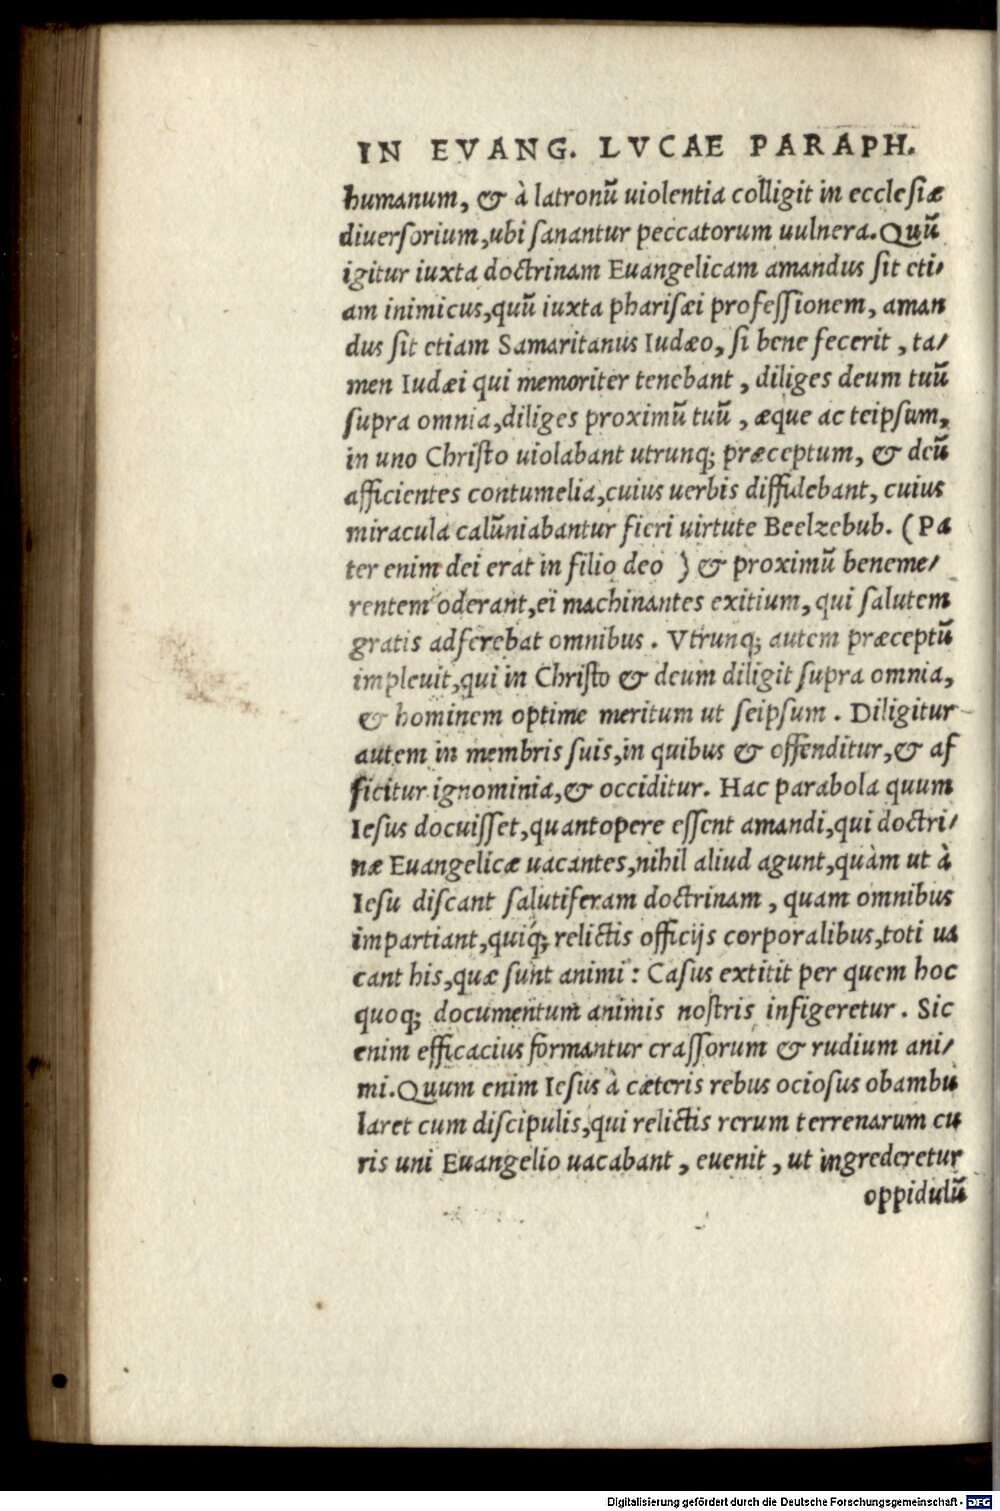 IN EVANG. LVCAE PARAPH.
humanum, & à latronũ uiolentia colligit in ecclesiæ
diuersorium,ubi sanantur peccatorum uulnera.Quũ
igitur iuxta doctrinam Euangelicam amandus sit eti/
am inimicus,quũ iuxta pharisæi professionem, aman
dus sit etiam Samaritanus Iudæo, si bene fecerit , ta/
men Iudæi qui memoriter tenebant , diliges deum tuũ
supra omnia,diliges proximũ tuũ , æque ac teipsum,
in uno Christo uiolabant utrunq; præceptum, & deũ
afficientes contumelia,cuius uerbis diffidebant, cuius
miracula calũniabantur fieri uirtute Beelzebub. (Pa
ter enim dei erat in filio deo ) & proximũ beneme/
rentem oderant,ei machinantes exitium, qui salutem
gratis adferebat omnibus . Vtrunq; autem præceptũ
impleuit,qui in Christo & deum diligit supra omnia,
& hominem optime meritum ut seipsum . Diligitur
autem in membris suis,in quibus & offenditur,& af
ficitur ignominia,& occiditur. Hac parabola quum
Iesus docuisset,quantopere essent amandi,qui doctri/
næ Euangelicæ uacantes,nihil aliud agunt,quàm ut à
Iesu discant salutiferam doctrinam , quam omnibus
impartiant,quiq; relictis officijs corporalibus,toti ua
cant his,quæ sunt animi : Casus extitit per quem hoc
quoq; documentum animis nostris infigeretur . Sic
enim efficacius formantur crassorum & rudium ani/
mi.Quum enim Iesus à cæteris rebus ociosus obambu
laret cum discipulis,qui relictis rerum terrenarum cu
ris uni Euangelio uacabant , euenit , ut ingrederetur
oppidulũ
Digitalisierung gefördert durch die Deutsche Forschungsgemeinschaft - DFG